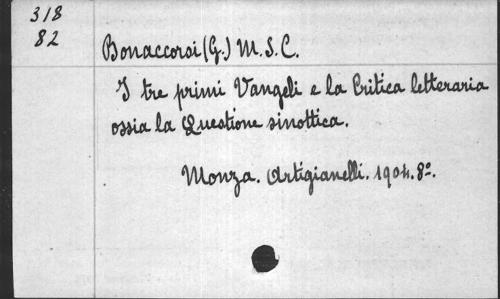 318
82
Bonaccorsi (G.) M.S.C.
I tre primi Vangeli e la Critica letteraria
ossia la Questione sinottica.
Monza. Artigianelli. 1904. 8º.